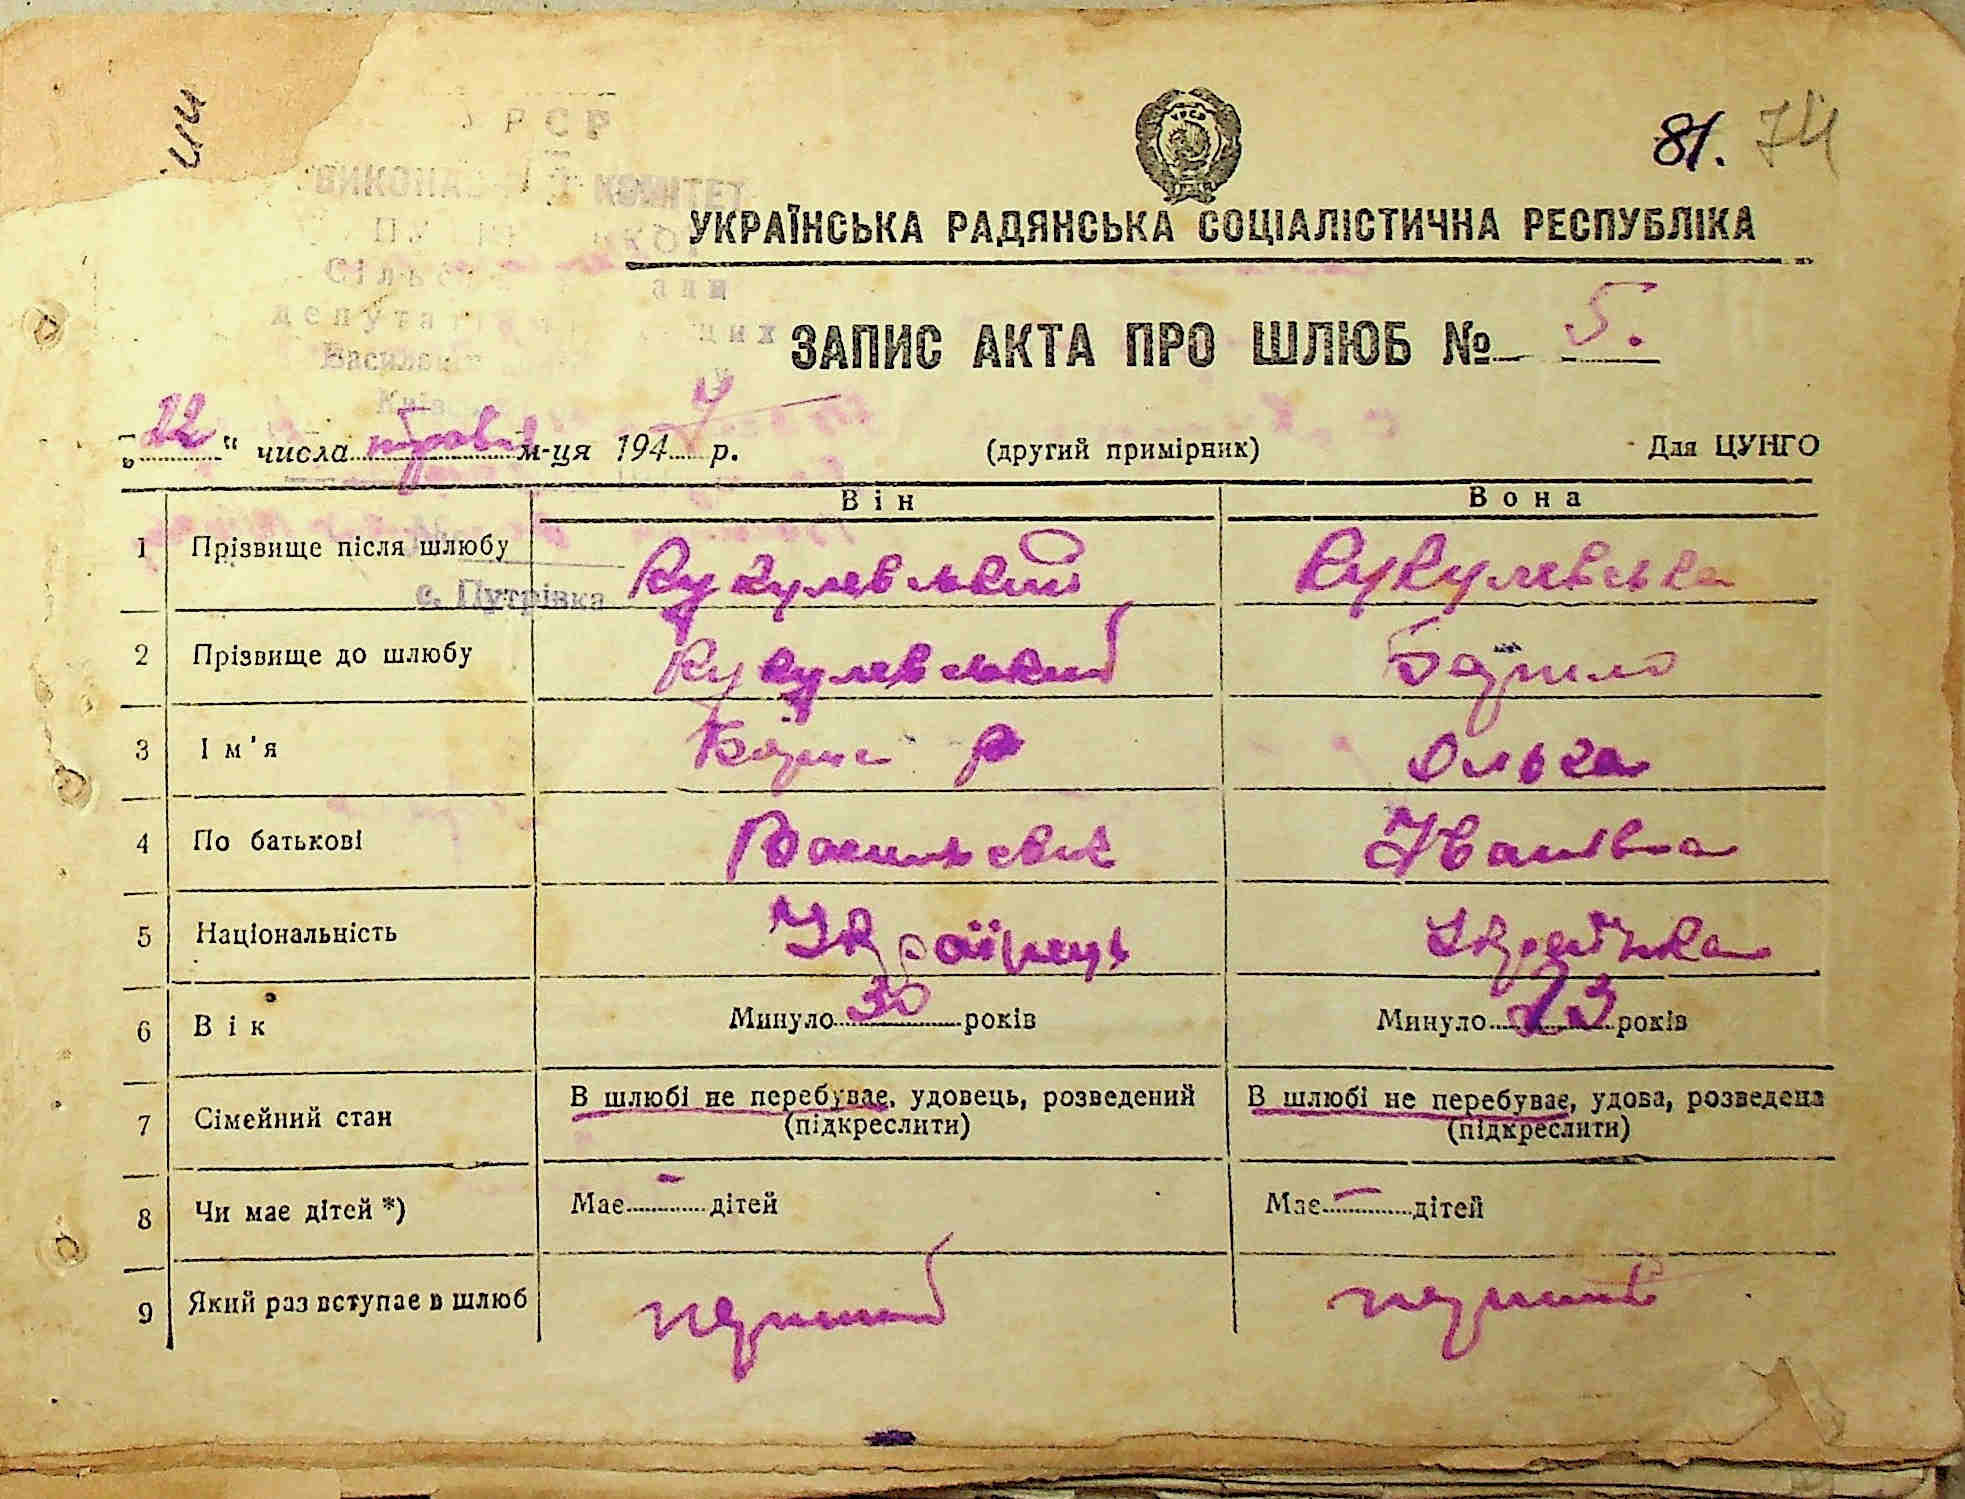 УРСР
ВИКОНАВЧИЙ КОМІТЕТ
депутатів
Васильків
с. Путрівка
81. 74
УРСР
УКРАЇНСЬКА РАДЯНСЬКА СОЦІАЛІСТИЧНА РЕСПУБЛІКА
ЗАПИС АКТА ПРО ШЛЮБ № 5.
„22“ числа травня м-ця 194 р.
(другий примірник)
Для ЦУНГО
Він Вона
1 Прізвище після шлюбу Кукулевський Кукулевська
2 Прізвище до шлюбу Кукулевський
3 Ім'я Борис Ольга
4 По батькові Васильевич Иванівна
5 Національність Українець Українка
6 Вік Минуло 30 років Минуло 23 років
7 Сімейний стан В шлюбі не перебуває, удовець, розведений (підкреслити) В шлюбі не перебуває, удова, розведена (підкреслити)
8 Чи має дітей *) Має — дітей Має — дітей
9 Який раз вступає в шлюб перший перший